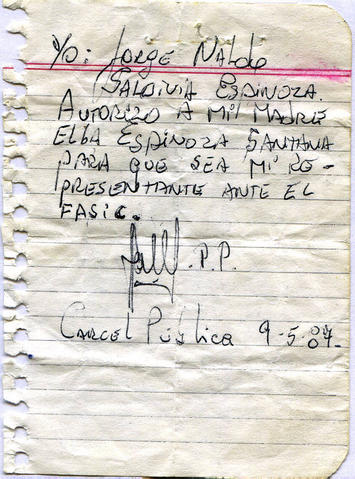 Yo: Jorge Naldo
Saldivia Espinoza.
Autorizo a mi Madre
Elba Espinoza Santana
para que sea mi re-
presentante ante el
FASIC.
.P.P.
Carcel Pública 9-5-87-